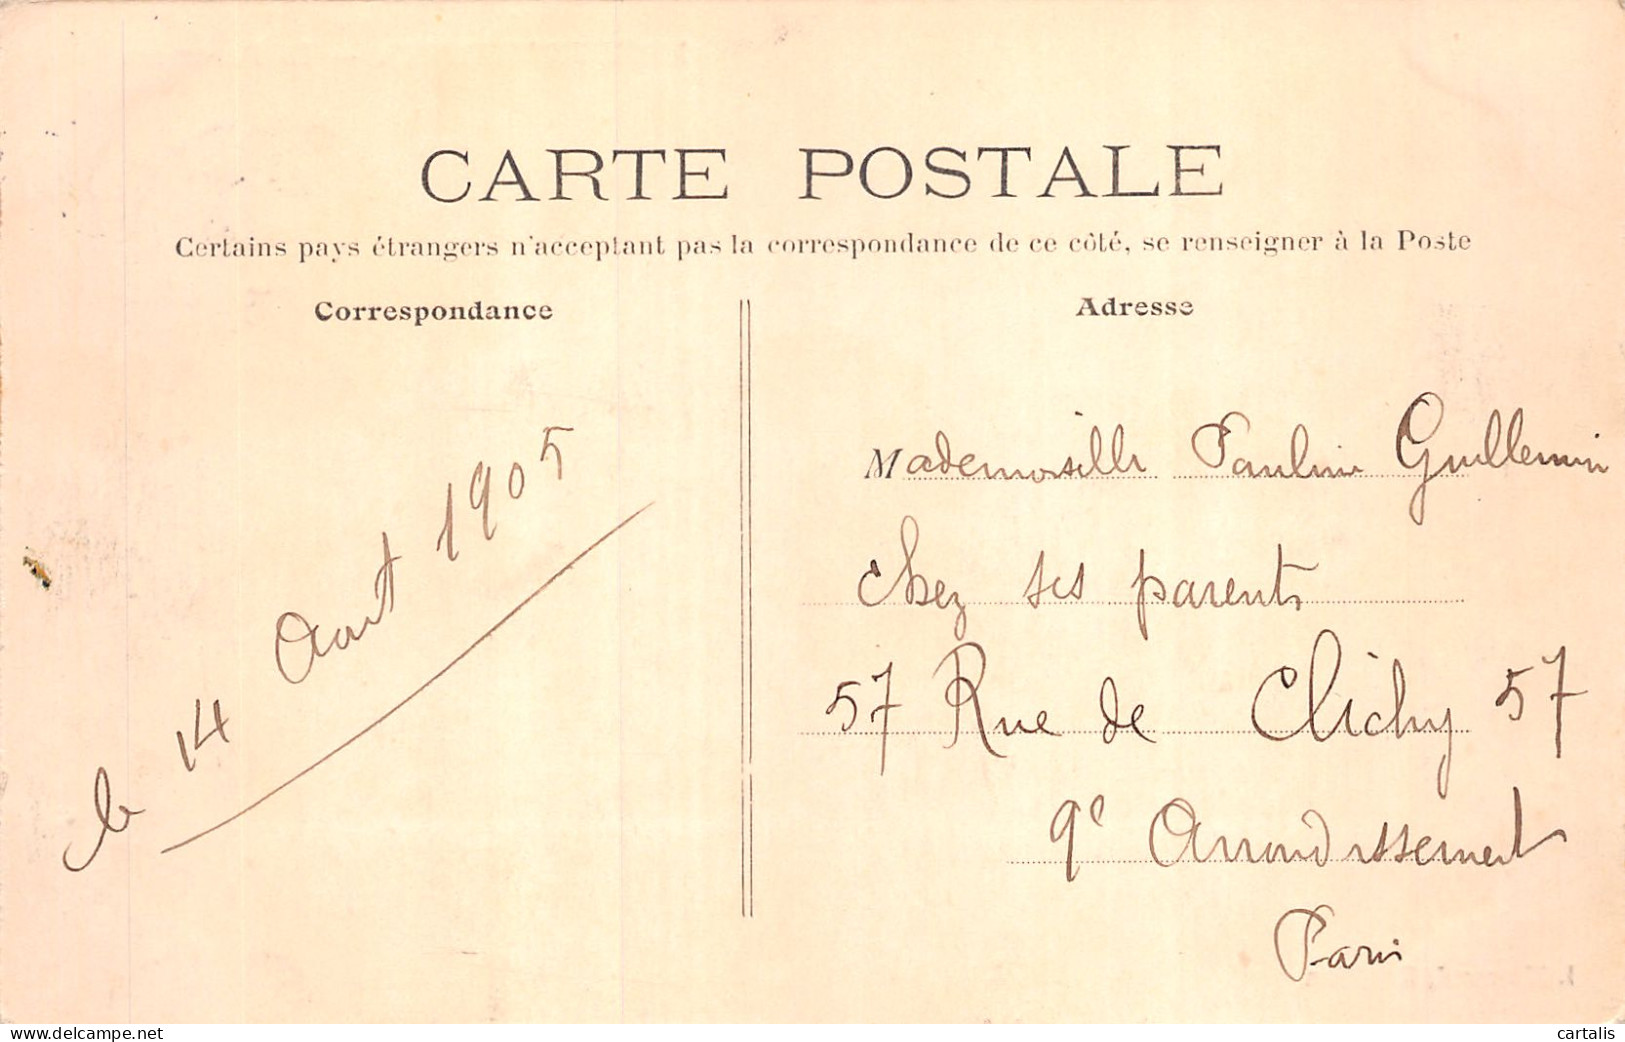 CARTE POSTALE
Certains pays étrangers n'acceptant pas la correspondance de ce côté, se renseigner à la Poste
Correspondance
le 14 Aout 1905
Adresse
Mademoiselle Pauline Guillemin
Chez ses parents
57 Rue de Clichy 57
9e Arrondissement
Paris
www.delcampe.net
cartalis